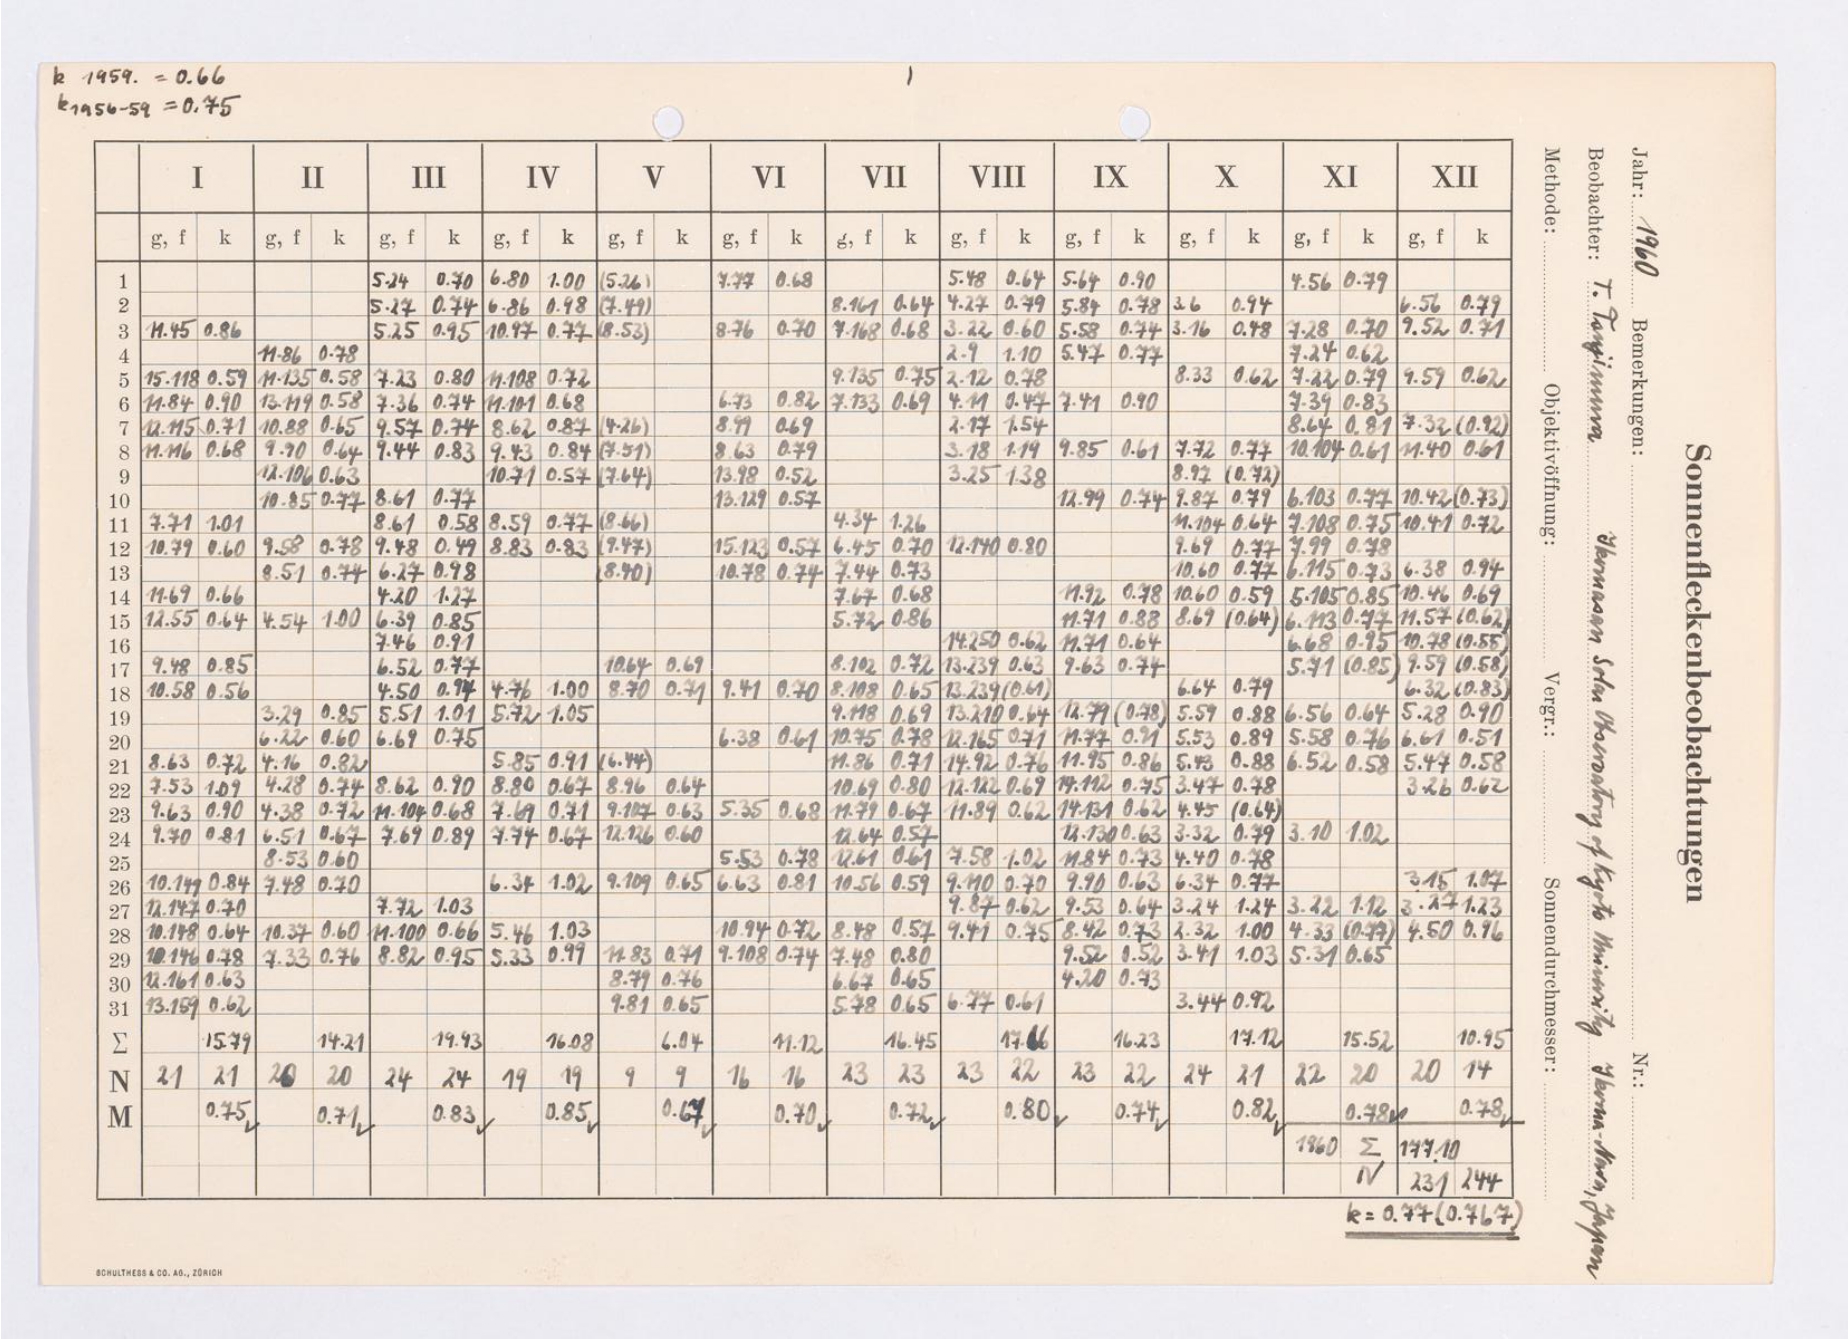 k 1959. = 0.66
k1956-59 = 0.75
I II III IV V VI VII VIII IX X XI XII
g, f k g, f k g, f k g, f k g, f k g, f k g, f k g, f k g, f k g, f k g, f k g, f k
1 5.24 0.70 6.80 1.00 (5.26) 7.77 0.68 5.48 0.64 5.64 0.90 4.56 0.79
2 5.27 0.74 6.86 0.98 (7.49) 8.161 0.64 4.27 0.79 5.84 0.78 3.6 0.94 6.56 0.79
3 11.45 0.86 5.25 0.95 10.97 0.77 (8.53) 8.76 0.70 7.168 0.68 3.22 0.60 5.58 0.74 3.16 0.48 7.28 0.70 9.52 0.71
4 11.86 0.78 2.9 1.10 5.47 0.77 7.24 0.62
5 15.118 0.59 11.135 0.58 7.23 0.80 11.108 0.72 9.135 0.75 2.12 0.78 8.33 0.62 7.22 0.79 9.59 0.62
6 11.84 0.90 13.119 0.58 7.36 0.74 11.101 0.68 6.73 0.82 7.133 0.69 4.11 0.47 7.41 0.90 7.39 0.83
7 12.115 0.71 10.88 0.65 9.57 0.74 8.62 0.87 (4.26) 8.99 0.69 2.17 1.54 8.64 0.81 7.32 (0.92)
8 11.116 0.68 9.90 0.64 9.44 0.83 9.43 0.84 (7.51) 8.63 0.79 3.18 1.19 9.85 0.61 7.72 0.77 10.104 0.61 11.40 0.61
9 12.106 0.63 10.71 0.57 (7.64) 13.98 0.52 3.25 1.38 8.97 (0.72)
10 10.85 0.77 8.61 0.77 13.129 0.57 12.99 0.74 9.87 0.79 6.103 0.77 10.42 (0.73)
11 7.71 1.01 8.61 0.58 8.59 0.77 (8.66) 4.34 1.26 11.104 0.64 7.108 0.75 10.41 0.72
12 10.79 0.60 9.58 0.78 9.48 0.49 8.83 0.83 (9.47) 15.123 0.57 6.45 0.70 12.140 0.80 9.69 0.77 7.99 0.78
13 8.51 0.74 6.27 0.98 (8.40) 10.78 0.74 7.44 0.73 10.60 0.77 6.115 0.73 6.38 0.94
14 11.69 0.66 4.20 1.27 7.67 0.68 11.92 0.78 10.60 0.59 5.105 0.85 10.46 0.69
15 12.55 0.64 4.54 1.00 6.39 0.85 5.72 0.86 11.71 0.88 8.69 (0.64) 6.113 0.77 11.57 (0.62)
16 7.46 0.91 14.250 0.62 11.71 0.64 6.68 0.95 10.78 (0.55)
17 9.48 0.85 6.52 0.77 10.64 0.69 8.102 0.72 13.239 0.63 9.63 0.74 5.71 (0.85) 9.59 (0.58)
18 10.58 0.56 4.50 0.94 4.76 1.00 8.70 0.71 9.41 0.70 8.108 0.65 13.239 (0.61) 6.64 0.79 6.32 (0.83)
19 3.29 0.85 5.51 1.01 5.72 1.05 9.118 0.69 13.210 0.64 12.79 (0.78) 5.59 0.88 6.56 0.64 5.28 0.90
20 6.22 0.60 6.69 0.75 6.38 0.61 10.75 0.78 12.165 0.71 11.77 0.91 5.53 0.89 5.58 0.76 6.61 0.51
21 8.63 0.72 4.16 0.82 5.85 0.91 (6.44) 11.86 0.71 14.92 0.76 11.95 0.86 5.43 0.88 6.52 0.58 5.47 0.58
22 7.53 1.09 4.28 0.74 8.62 0.90 8.80 0.67 8.96 0.64 10.69 0.80 12.122 0.69 14.112 0.75 3.47 0.78 3.26 0.62
23 9.63 0.90 4.38 0.72 11.104 0.68 7.69 0.71 9.107 0.63 5.35 0.68 11.79 0.67 11.89 0.62 14.131 0.62 4.45 (0.64)
24 9.70 0.81 6.51 0.67 7.69 0.89 7.74 0.67 12.126 0.60 12.64 0.57 12.130 0.63 3.32 0.79 3.10 1.02
25 8.53 0.60 5.53 0.78 12.61 0.61 7.58 1.02 11.84 0.73 4.40 0.78
26 10.149 0.84 7.48 0.70 6.34 1.02 9.109 0.65 6.63 0.81 10.56 0.59 9.110 0.70 9.90 0.63 6.34 0.77 3.15 1.07
27 12.147 0.70 7.72 1.03 9.87 0.62 9.53 0.64 3.24 1.24 3.22 1.12 3.27 1.23
28 10.148 0.64 10.37 0.60 11.100 0.66 5.46 1.03 10.94 0.72 8.48 0.57 9.41 0.75 8.42 0.73 2.32 1.00 4.33 (0.77) 4.50 0.96
29 10.146 0.78 7.33 0.76 8.82 0.95 5.33 0.99 11.83 0.71 9.108 0.74 7.48 0.80 9.52 0.52 3.41 1.03 5.31 0.65
30 12.161 0.63 8.79 0.76 6.67 0.65 4.20 0.73
31 13.159 0.62 9.81 0.65 5.78 0.65 6.77 0.61 3.44 0.92
Σ 15.79 14.21 19.93 16.08 6.04 11.12 16.45 17.66 16.23 17.12 15.52 10.95
N 21 21 20 20 24 24 19 19 9 9 16 16 23 23 23 22 23 22 24 21 22 20 20 14
M 0.75 0.71 0.83 0.85 0.67 0.70 0.72 0.80 0.74 0.82 0.78 0.78
1960 Σ 177.10
N 231 244
k = 0.77 (0.767)
SCHULTHESS & CO. AG., ZÜRICH
Sonnenfleckenbeobachtungen
Jahr: 1960 Bemerkungen: Nr.:
Beobachter: T. Tanimura Ikomasan Solar Observatory of Kyoto University Ikoma-Nara, Japan
Methode: Objektivöffnung: Vergr.: Sonnendurchmesser: